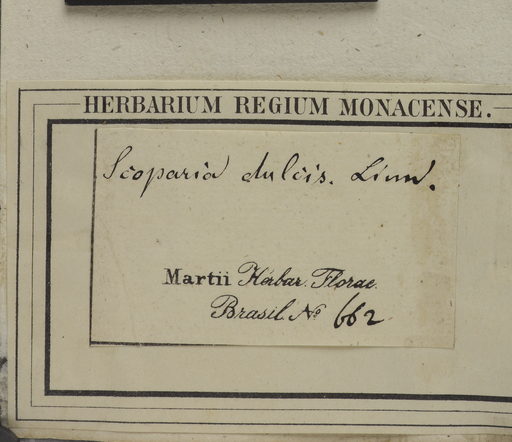 HERBARIUM REGIUM MONACENSE.
Scoparia dulcis. Linn.
Martii Herbar. Florae
Brasil. No 662